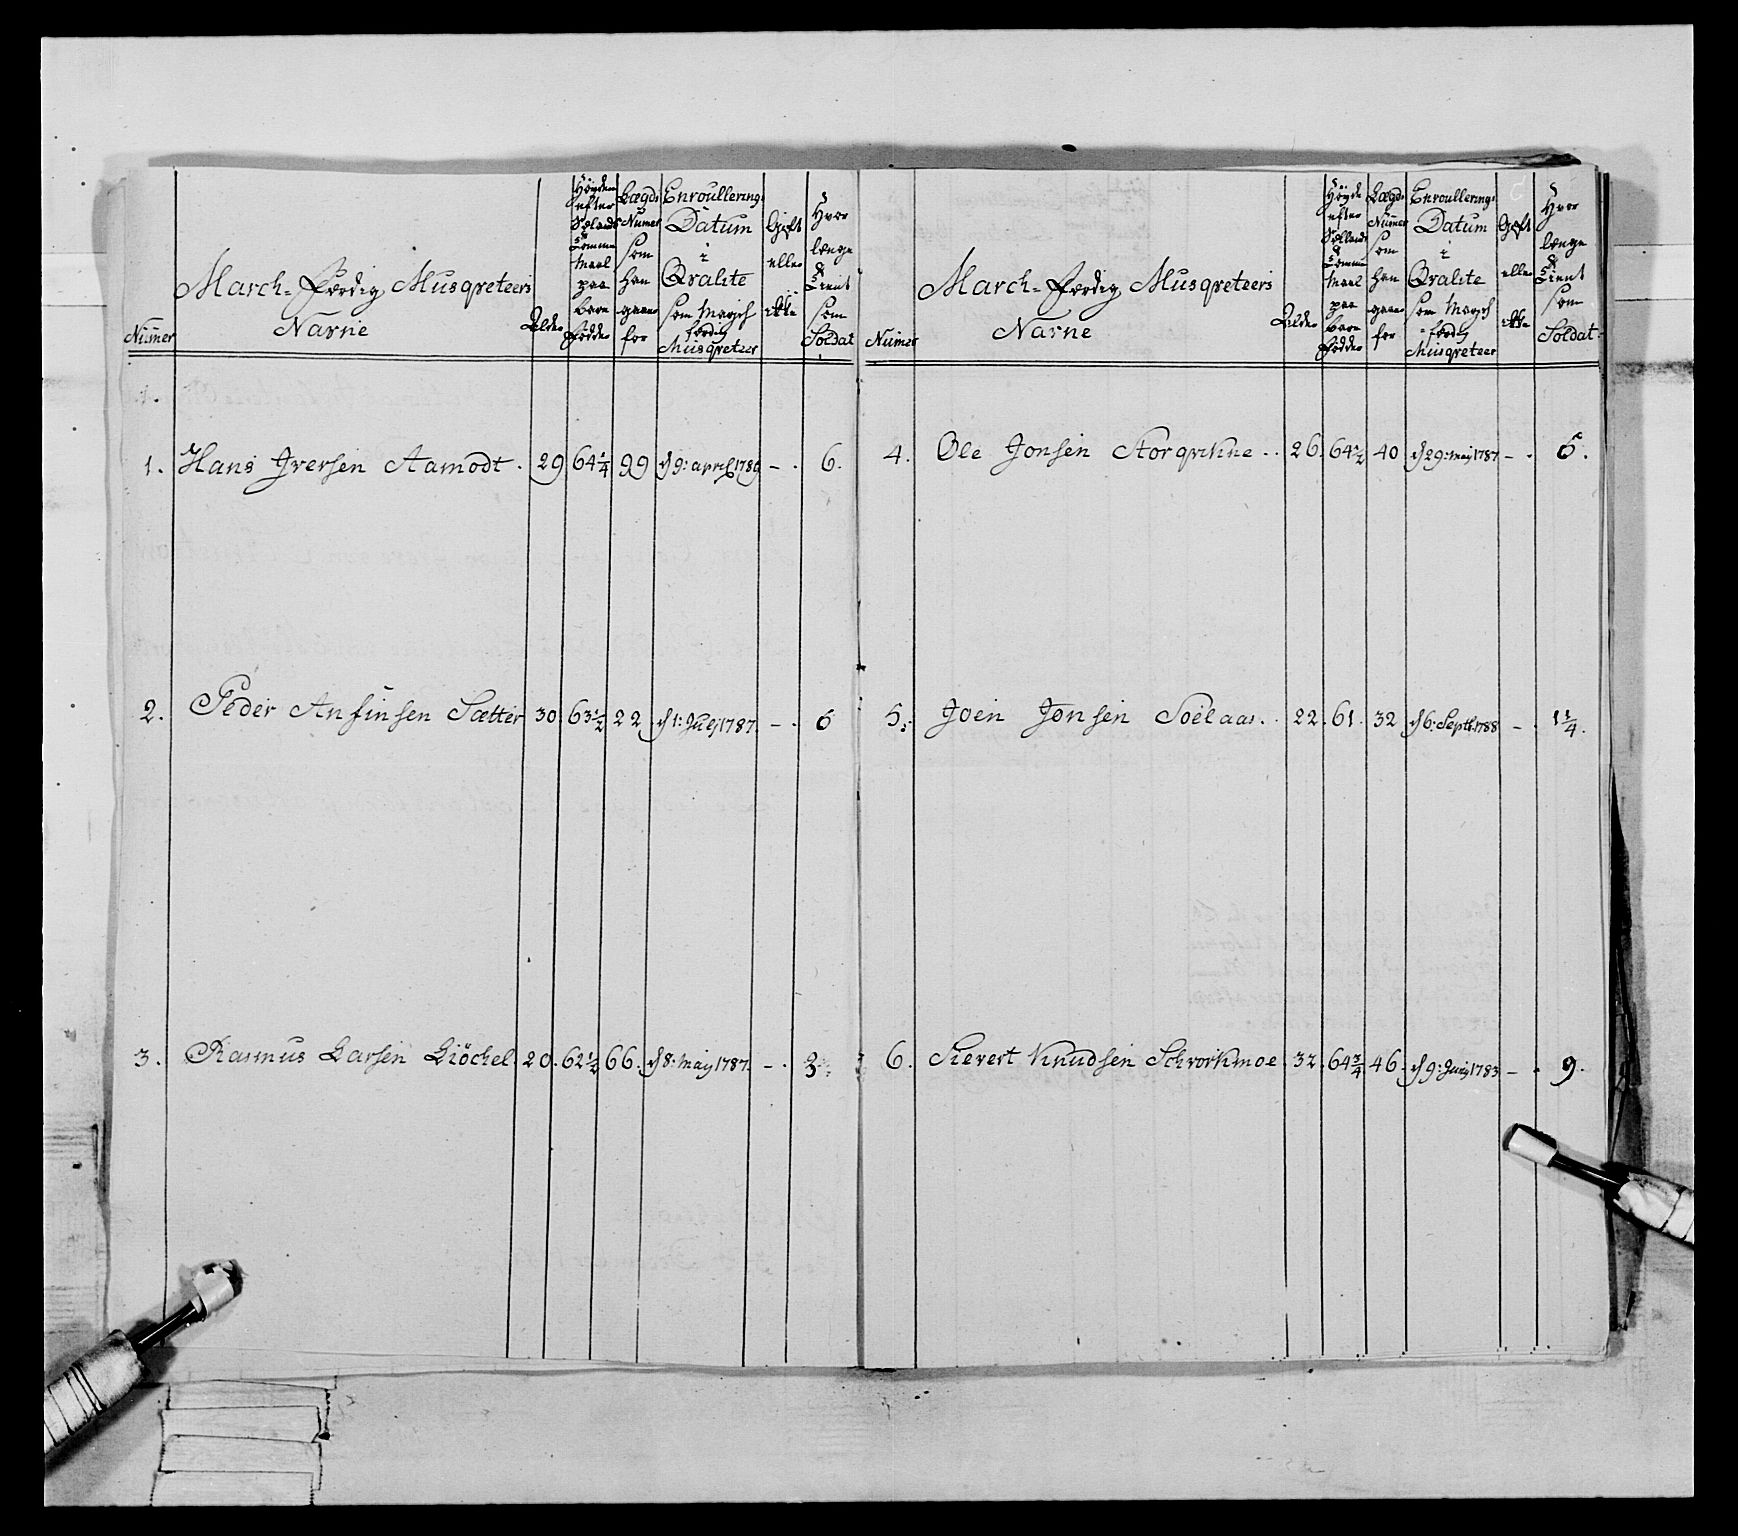 Numer
March-Færdig Musqveteers
Navne
Alder
Høyden
efter
Sælands
Comme
Maal
paa
bare
Fødder
Lægds
Numer
som
han
gaaer
for
Enroullerings
Datum
i
Qvalite
som Marsch
færdig
Musqveteer
Gift
eller
ikke
Hvor
længe
Tient
som
Soldat
1.
1. Hans Iversen Aamodt. 29 64 1/4 99 d 9: april 1789 - . 6.
2. Peder Anfinsen Sætter 30 63 1/2 22 d 1: July 1787. - . 6
3. Rasmus Larsen Liöchel. 20. 62 1/2 66. d 8: may 1787. - . 3.
Numer
March-Færdig Musqveteers
Navne
Alder
Høyde
efter
Sællands
Comme
Maal
paa
bare
Fødder
Lægds
Numer
som
han
gaaer
for
Enroullerings
Datum
i
Qvalite
som Marsch
færdig
Musqveteer
Gift
eller
ikke
Hvor
længe
Tient
som
Soldat
4. Ole Jonsen Storqvikne .. 26. 64 1/2 40 d 29: may 1787 - . 6.
5. Joen Jonsen Soëlaas. . 22. 61. 32 d 6: Septr. 1788 - . 1 1/4.
6. Sievert Knudsen Schrorkmoe. 32. 64 3/4 46. d 9: Juny 1783 - . 9.